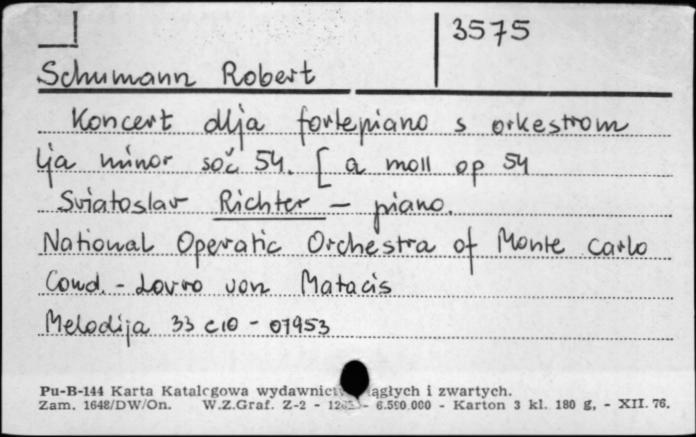 3575
Schumann Robert
Koncert dlja fortepiano s orkestrom
lja minor soč 54. [ a moll op 54
Sviatoslav Richter – piano.
National Operatic Orchestra of Monte Carlo
Cond. - Lovro von Matacis
Melodija 33 c10 - 07953
Pu-B-144 Karta Katalogowa wydawnictw ciągłych i zwartych.
Zam. 1648/DW/On. W.Z.Graf. Z-2 - 6.590.000 - Karton 3 kl. 180 g, - XII. 76.